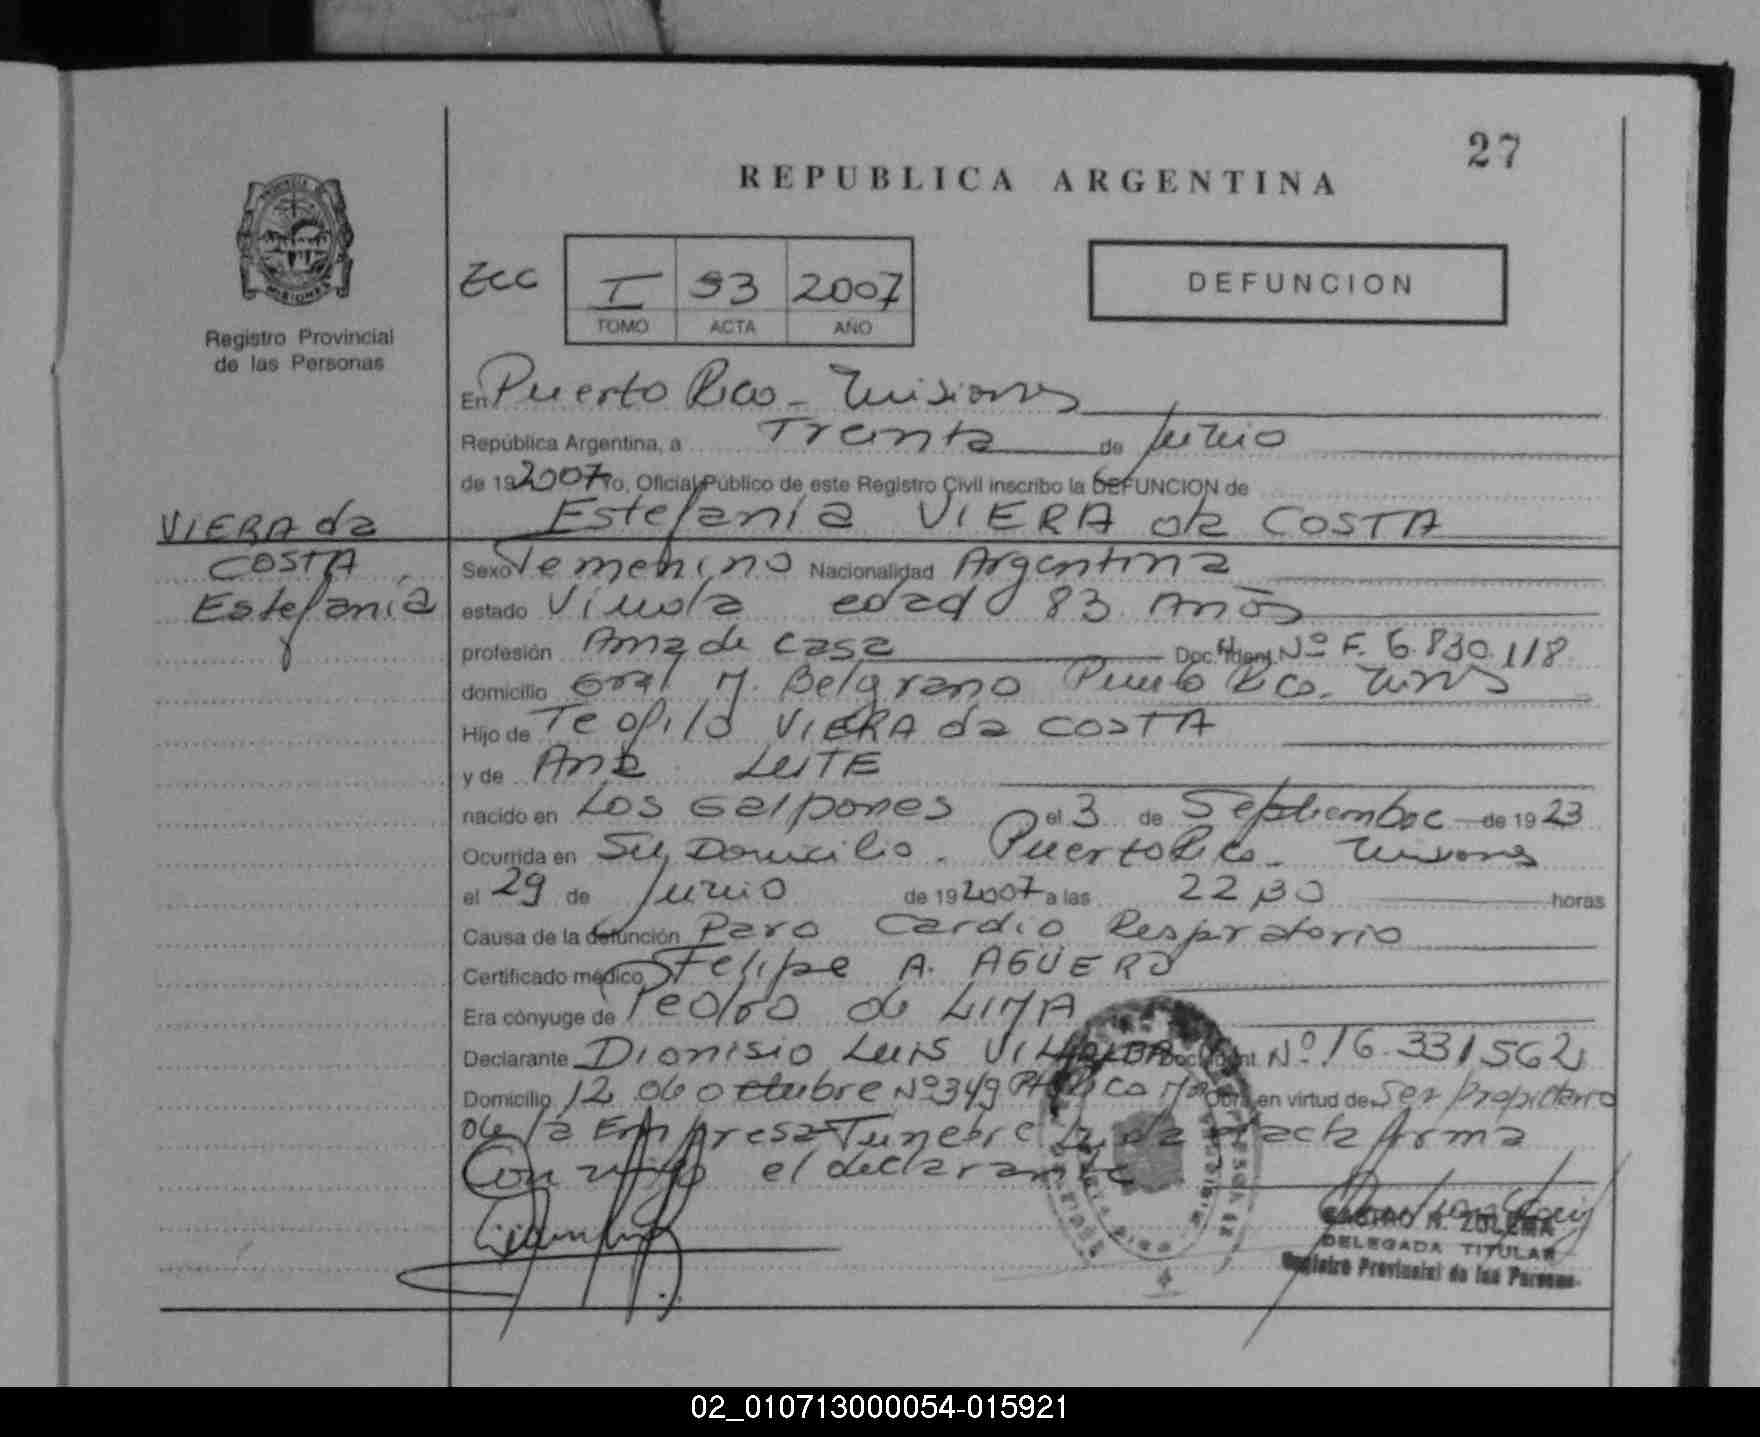 27
REPUBLICA ARGENTINA
I 93 2007
TOMO ACTA AÑO
DEFUNCION
MISIONES
Registro Provincial
de las Personas
En Puerto Rico - Misiones
República Argentina, a Treinta de Junio
de 19 2007 Yo, Oficial Público de este Registro Civil inscribo la DEFUNCION de
Estefanía VIERA da COSTA
VIERA da
COSTA,
Estefanía
Sexo Femenino Nacionalidad Argentina
estado Viuda edad 83 Años
profesión Ama de casa Doc. Ident. Nº F. 6.830.118
domicilio Gral M. Belgrano Puerto Rico. Mnes
Hijo de Teofilo VIERA da COSTA
y de Ana LEITE
nacido en Los Galpones el 3 de Septiembre de 19 23
Ocurrida en Su Domicilio. Puerto Rico - Misiones
el 29 de Junio de 19 2007 a las 22,30 horas
Causa de la defunción Paro Cardio Respiratorio
Certificado médico Felipe A. AGUERO
Era cónyuge de Pedro de LIMA
Declarante Dionisio Luis VILLALBA Doc. Ident. Nº 16.331562
Domicilio 12 de Octubre Nº 349 Pto Rico Obra en virtud de Ser Propietario
de la Empresa Funebre Leida acta firma
Con migo el declarante
CASTRO N. ZULEMA
DELEGADA TITULAR
Registro Provincial de las Personas
02_010713000054-015921